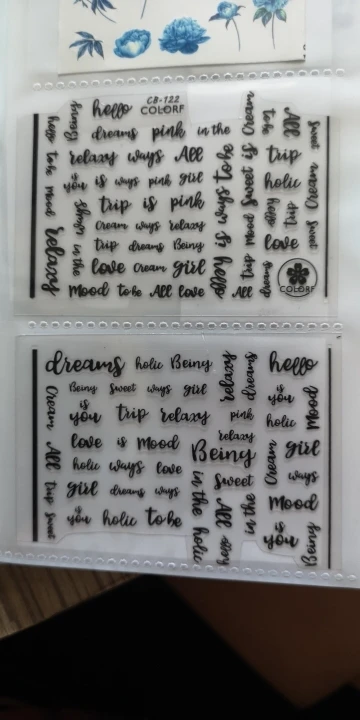 hello
CB-122
COLORF
dreams pink in the
relaxy ways All
you is ways pink girl
trip is pink
Cream ways relaxy
trip dreams Being
love Cream girl
Mood to be All love
hello to be mood relaxy
in the
is ways to be
is hello
All trip mood Sweet is Cream
to be
hello
trip
dreams
All
trip
holic
love
COLORF
Sweet Cream Sweet
dreams holic Being
Being Sweet ways girl
is
you trip relaxy
love is Mood
holic ways love
girl dreams ways
is
you holic to be
Cream All trip Sweet
relaxy
dreams
pink
relaxy
Being
Sweet
in the holic
hello All
in the
Cream
hello
is
you
holic
Mood
girl
ways
Mood
is
you